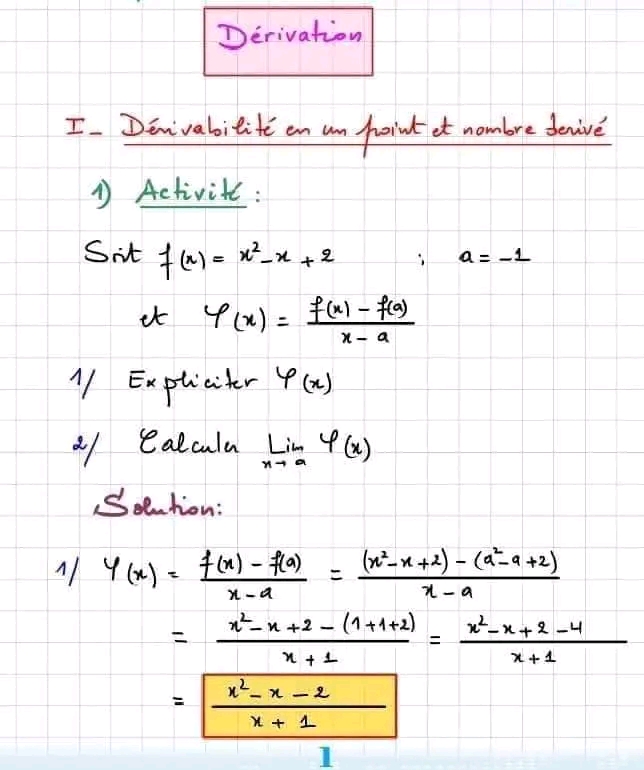 Dérivation
I- Dérivabilité en un point et nombre derivé
1) Activité :
Soit f(x) = x² - x + 2 ; a = -1
et φ(x) = (f(x) - f(a)) / (x - a)
1/ Expliciter φ(x)
2/ Calculer Lim x→a φ(x)
Solution:
1/ φ(x) = (f(x) - f(a)) / (x - a) = ((x² - x + 2) - (a² - a + 2)) / (x - a)
= (x² - x + 2 - (1 + 1 + 2)) / (x + 1) = (x² - x + 2 - 4) / (x + 1)
= (x² - x - 2) / (x + 1)
1